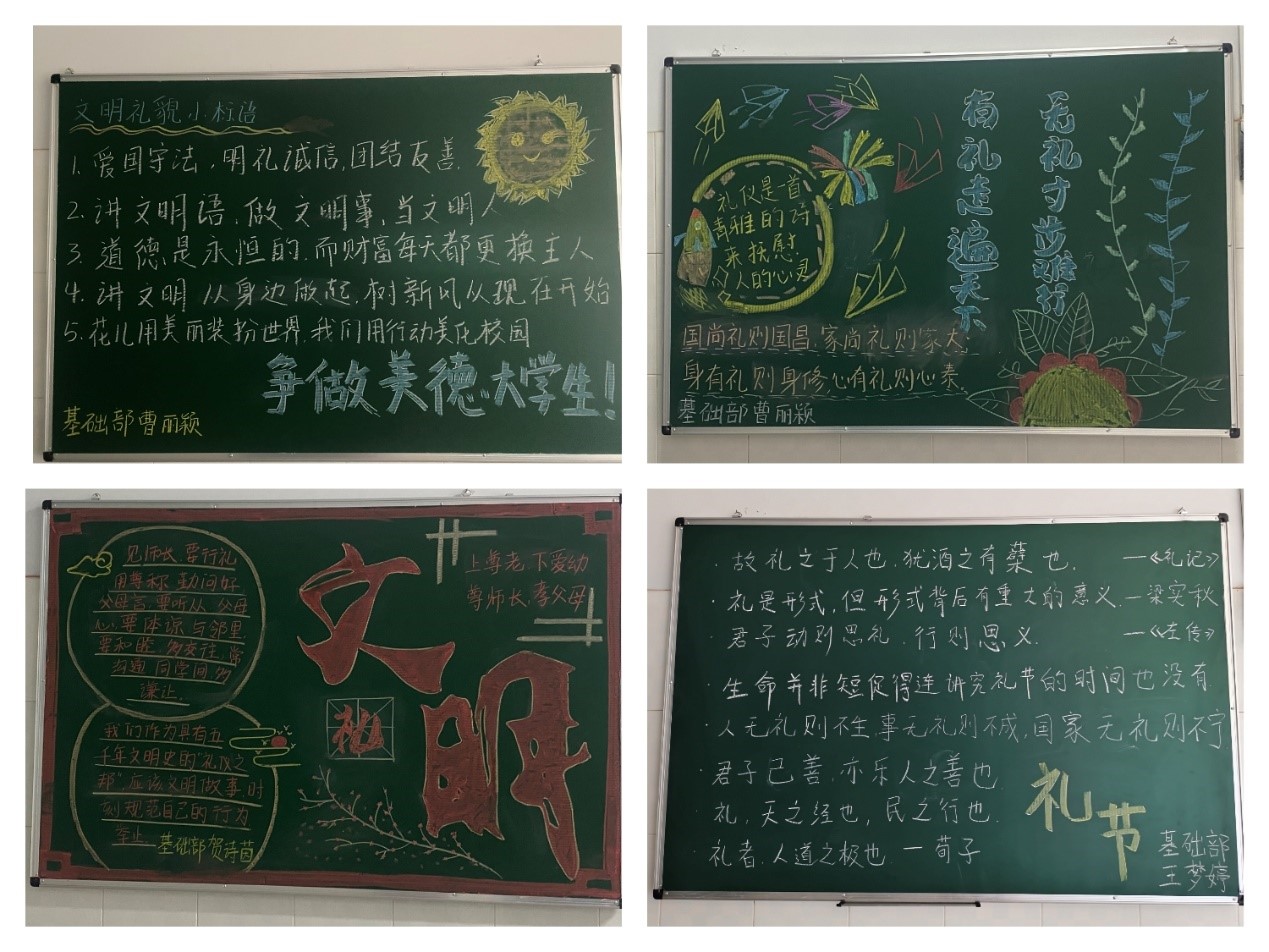 文明礼貌小标语
1. 爱国守法,明礼诚信,团结友善.
2. 讲文明语、做文明事、当文明人
3. 道德是永恒的.而财富每天都更换主人
4. 讲文明从身边做起,树新风从现在开始
5. 花儿用美丽装扮世界.我们用行动美化校园
争做美德大学生!
基础部曹丽颖
礼仪是一首
清雅的诗
来抚慰
人的心灵
有礼走遍天下
无礼寸步难行
国尚礼则国昌.家尚礼则家大.
身有礼则身修.心有礼则心泰.
基础部曹丽颖
见师长.要行礼
用尊称.勤问好
父母言.要听从.父母
心.要体谅.与邻里.
要和睦.多交往.常
沟通.同学间.多
谦让.
我们作为具有五
千年文明史的"礼仪之
邦"应该文明做事.时
刻规范自己的行为
举止.
基础部贺诗茵
文明
礼
上尊老.下爱幼
尊师长.孝父母
· 故礼之于人也.犹酒之有蘖也. —《礼记》
· 礼是形式,但形式背后有重大的意义.—梁实秋
· 君子动则思礼.行则思义. —《左传》
· 生命并非短促得连讲究礼节的时间也没有.
· 人无礼则不生.事无礼则不成,国家无礼则不宁
· 君子己善.亦乐人之善也.
· 礼,天之经也,民之行也.
· 礼者.人道之极也 —荀子
礼节
基础部
王梦婷